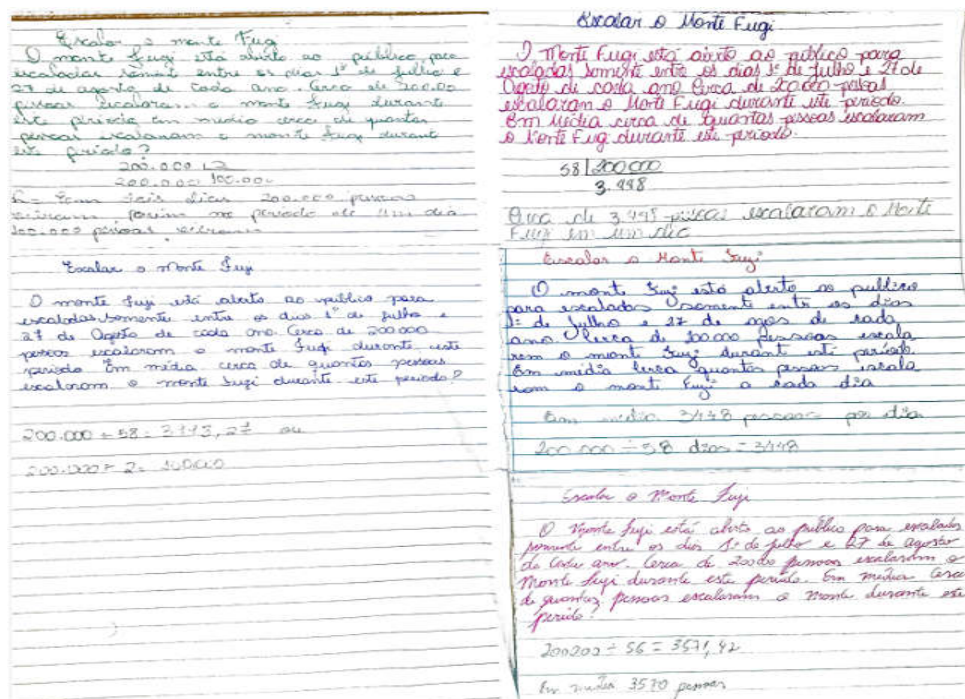 Escalar o monte Fugi
O monte Fugi está aberto ao público para
escaladas somente entre os dias 1º de Julho e
27 de agosto de cada ano. Cerca de 200.00
pessoas escalaram o monte Fugi durante
este periodo Em media cerca de quantas
pessoas escalaram o monte Fugi durant
este periodo?
200.000 2
200.000 100.00
R= Com dois dias 200.000 pessoas
porém no periodo de um dia
100.000 pessoas
Escalar o Monte Fugi
O monte Fugi está aberto ao publico para
escaladas somente entre os dias 1º de julho e
27 de Agosto de cada ano. Cerca de 200000
pessoas escalaram o monte Fugi durante este
periodo Em média cerca de quantas pessoas
escalaram o monte Fugi durante este periodo?
200.000 ÷ 58 = ou
200.000 ÷ 2 =
Escalar o Monte Fugi
O Monte Fugi está aberto ao público para
escaladas somente entre os dias 1º de Julho e 27 de
Agosto de cada ano Cerca de 200000
escalaram o Monte Fugi durante este periodo.
Em Média cerca de quantas pessoas escalaram
o Monte Fugi durante este periodo.
58 200000
3.448
Cerca de pessoas escalaram o Monte
Fugi em um dia
Escalar o Monte Fugi
O monte Fugi está aberto ao publico
para escaladas somente entre os dias
1º de Julho e 27 de de cada
ano Cerca de pessoas escala
ram o monte Fugi durant este periodo.
Em média cerca quantas pessoas escala
ram o monte Fugi a cada dia
Em média 3448 pessoas por dia
200.000 ÷ 58 dias = 3448
Escalar o Monte Fuji
O Monte Fuji está aberto ao público para escaladas
somente entre os dias 1º de julho e 27 de agosto
de cada ano. Cerca de pessoas escalaram o
Monte Fuji durante este periodo. Em média Cerca
de quantas pessoas escalaram o Monte durante este
periodo?
÷ 56 = 3571,42
Em média 3570 pessoas